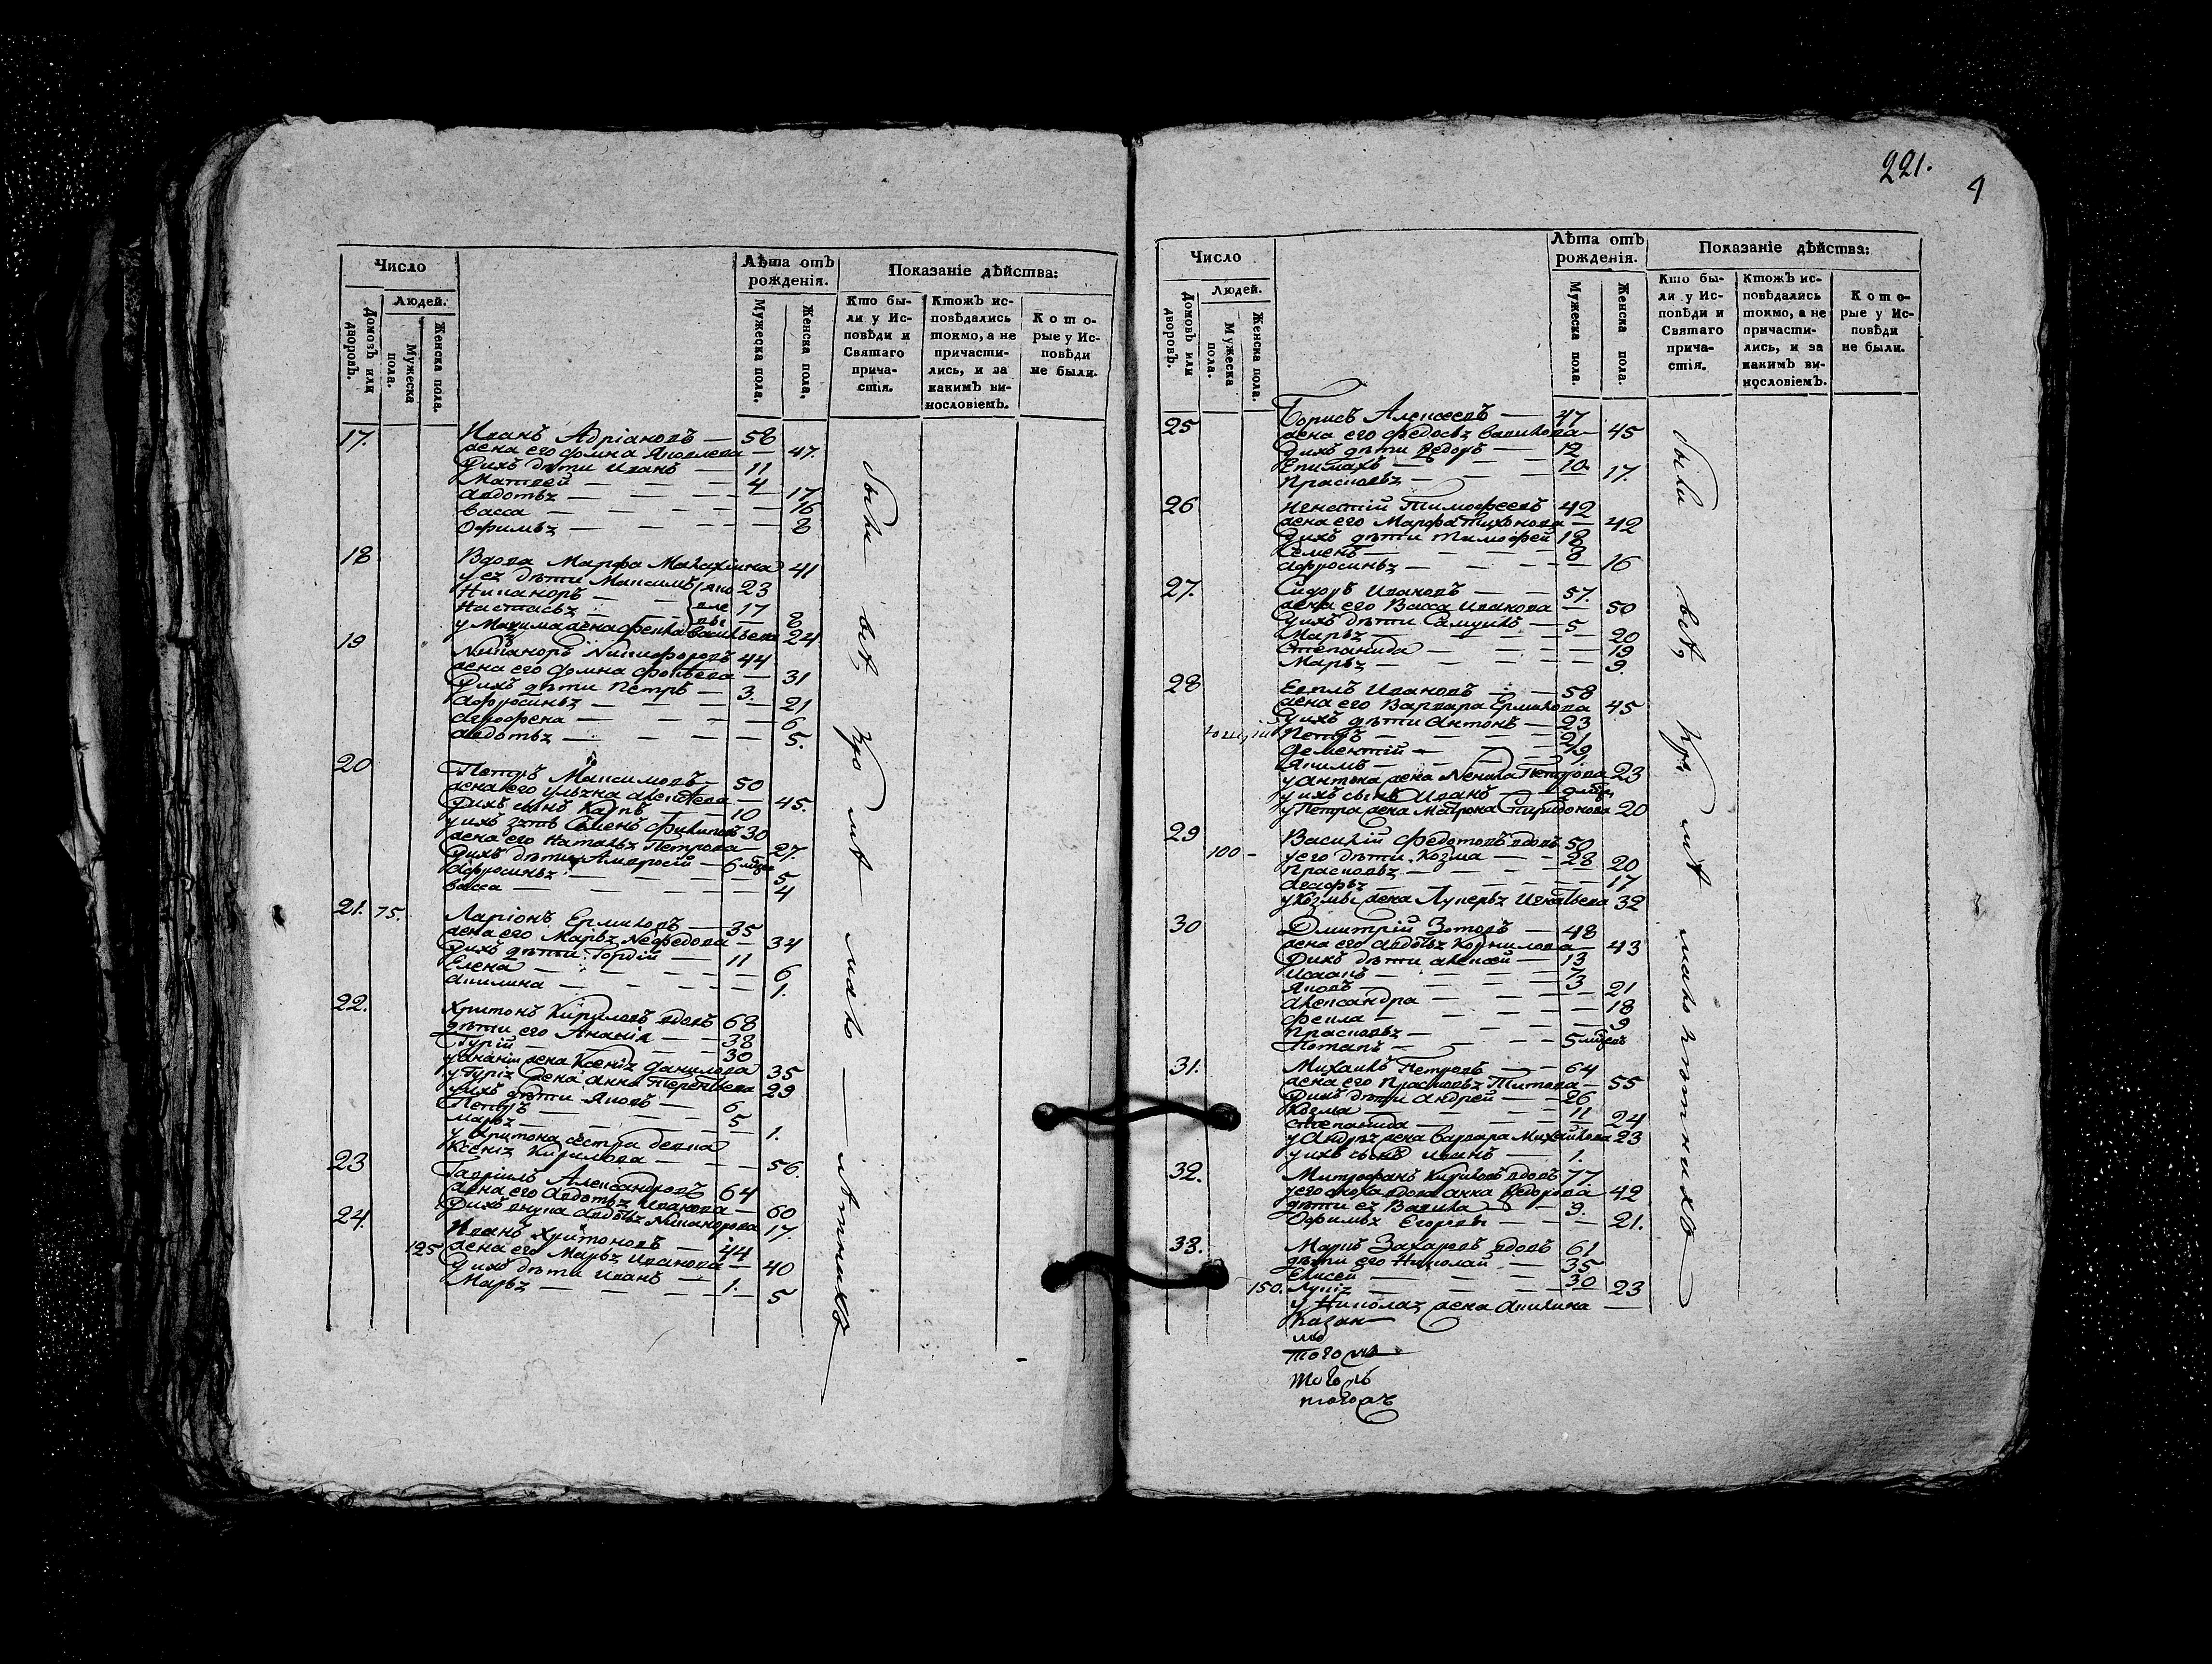 Число
Людей.
Домовъ или дворовъ.
Мужеска пола.
Женска пола.
Лѣта отъ рожденія.
Мужеска пола.
Женска пола.
Показаніе дѣйства:
Кто бы-
ли у Ис-
повѣди и
Святаго
прича-
стія.
Ктожъ ис-
повѣдались
токмо, а не
причасти-
лись, и за
какимъ ви-
нословіемъ.
Кото-
рые у Ис-
повѣди
не были.
17. Иванъ Адріановъ — 58
жена его Домна Яковлева — 47.
У ихъ дѣти Иванъ — 11
Матвей — 4
Авдотья — 17
Васса — 16
Офимья — 8
18 Вдова Марфа Малахіина 41
у ея дѣти Максимъ 23
Никаноръ — 17
Настасья — 8
у Махима жена Фекла Васильева 24
19 Никаноръ Никифоровъ 44
жена его Домна Фотіева — 31
У ихъ дѣти Петръ — 3.
Афросинья — 21
Агрофена — 6
Авдотья — 5.
20 Петръ Максимовъ — 50
жена его Ульяна Алексѣева — 45.
У ихъ сынъ Карпъ — 10
у ихъ зять Семенъ Филиповъ 30
жена его Наталья Петрова — 27.
У ихъ дѣти Амвросій — 6 мѣсе
Афросинья — 5
Васса — 4
21. 75. Ларіонъ Ермиловъ — 35
жена его Марья Нефедова — 34
У ихъ дѣти Гордій — 11
Елена — 6
Акилина — 1.
22. Харитонъ Кириловъ вдовъ 68
дѣти его Ананія — 38
Гурій — 30
у Ананіи жена Ксенія Данилова 35
у Гурія жена Анна Терентіева 29
у ихъ дѣти Яковъ — 6
Петръ — 5
Марья — 1.
у Харитона сестра девка
Ксенія Кирилова — 56.
23 Гавріилъ Александровъ 64
жена его Авдотья Иванова — 60
У ихъ внука Авдотья Никанорова 17.
24. Иванъ Харитоновъ — 44
125 жена его Марья Иванова — 40
У ихъ дѣти Иванъ — 1.
Марья — 5
были всѣ кромѣ мало — лѣтнихъ
221.
Число
Людей.
Домовъ или дворовъ.
Мужеска пола.
Женска пола.
Лѣта отъ рожденія.
Мужеска пола.
Женска пола.
Показаніе дѣйства:
Кто бы-
ли у Ис-
повѣди и
Святаго
прича-
стія.
Ктожъ ис-
повѣдались
токмо, а не
причасти-
лись, и за
какимъ ви-
нословіемъ.
Кото-
рые у Ис-
повѣди
не были.
25 Борисъ Алексеевъ — 47
жена его Федосья Васильева — 45
У ихъ дѣти Ѳедоръ — 12
Епимахъ — 10
Прасковья — 17.
26 Тимофеевъ 42
жена его Марфа Тихонова — 42
У ихъ дѣти Тимофей 18
Семенъ — 8
Афросинья — 16
27. Сидоръ Ивановъ — 57.
жена его Васса Иванова — 50
У ихъ дѣти Самуилъ — 5
Марья — 20
Степанида — 19
Марья — 9.
28 Евплъ Ивановъ — 58
жена его Варвара Ермилова 45
У ихъ дѣти Антонъ — 23
Петръ — 21
Дементій — 19
Якимъ — 7
у Антона жена Ненила Петрова 23
у ихъ сынъ Иванъ —
у Петра жена Матрона Спиридонова 20
29 Василій Федотовъ вдовъ 50
100 — у его дѣти Козма — 28
Прасковья — 20
Агафья — 17
у Козмы жена Лукерья Игнатьева 32
30 Дмитрій Зотовъ — 48
жена его Авдотья Корнилова — 43
У ихъ дѣти Алексей — 13
Исаакъ — 7
Яковъ — 3
Александра — 21
Фекла — 18
Прасковья — 9
Потапъ — 5 мѣсецъ
31. Михаилъ Петровъ — 64
жена его Прасковья Титова — 55
У ихъ дѣти Андрей — 26
Козма — 11
Степанида — 24
у Андрея жена Варвара Михайлова 23
у ихъ сынъ Иванъ — 1.
32. Митрофанъ Кириловъ вдовъ 77.
у его сноха вдова Анна Ѳедорова 42
дѣти ея Василей — 9.
Офимья Егоровы — 21.
33. Маркъ Захаровъ вдовъ 61
дѣти его Николай — 35
Елисей — 30
150. Лукія — 23
у Николая жена Акилина —
Казан
тогожъ
тогожъ
были всѣ, кромѣ малолѣтнихъ